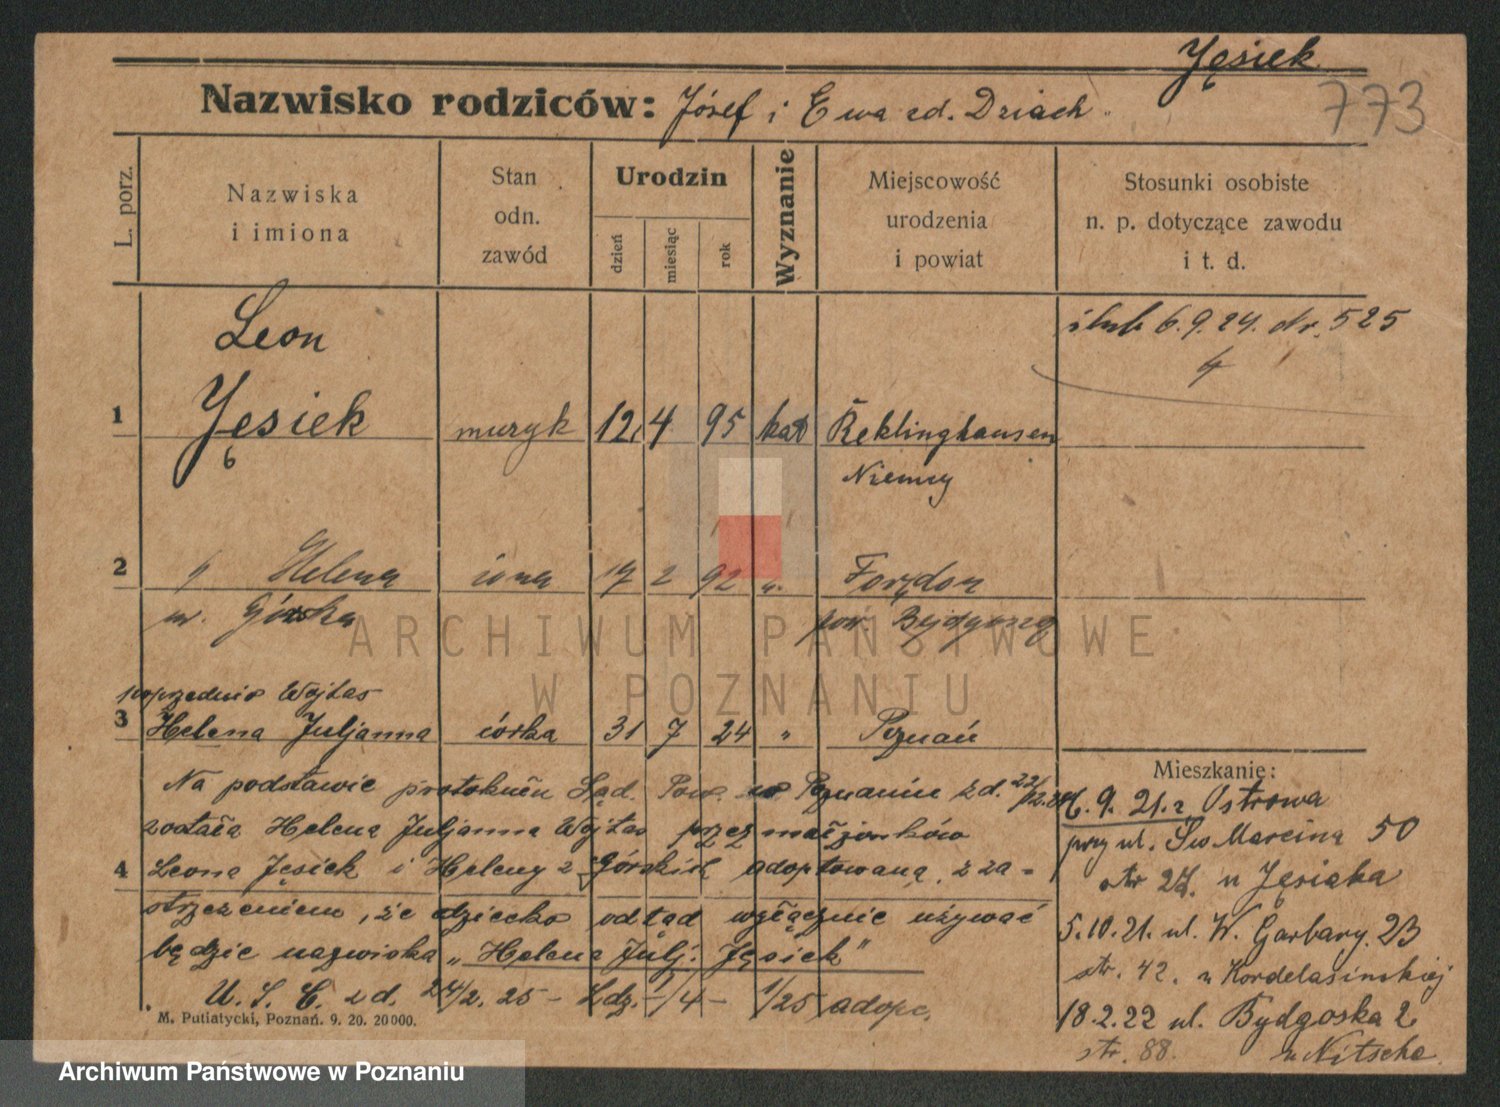 Jęsiek
773
Nazwisko rodziców: Józef i Ewa zd. Dziach
L. porz.
Nazwiska
i imiona
Stan
odn.
zawód
Urodzin
dzień
miesiąc
rok
Wyznanie
Miejscowość
urodzenia
i powiat
Stosunki osobiste
n. p. dotyczące zawodu
i t. d.
ślub 6.9.24. Nr. 525
Leon
1 Jęsiek muzyk 12. 4 95 kat Reklinghausen
Niemcy
2 " Helena żona 17 2 92 ". Fordon
ur. Górska pow. Bydgoszcz
ARCHIWUM PAŃSTWOWE
W POZNANIU
poprzednio Wojtas
3 Helena Juljanna córka 31 7 24 " Poznań
Na podstawie protokułu Sąd. Pow. w Poznaniu z d. 22/12.24
została Helena Juljanna Wojtas przez małżonków
4 Leona Jęsiek i Heleny z Górskich adoptowaną, z za-
strzeżeniem, że dziecko odtąd wyłącznie używać
będzie nazwiska „Helena Julj. Jęsiek"
U. S. C. z d. 24/2. 25 - L.dz. 1/4 - 1/25 adopc.
M. Putiatycki, Poznań. 9. 20. 20000.
Mieszkanie:
6. 9. 21. z Ostrowa
przy ul. Św Marcina 50
str 27. u Jęsiaka
5.10.21. ul. W. Garbary. 23
str. 42. u Kordelasińskiej
18.2.22 ul. Bydgoska 2
str. 88. u Nitsche.
Archiwum Państwowe w Poznaniu